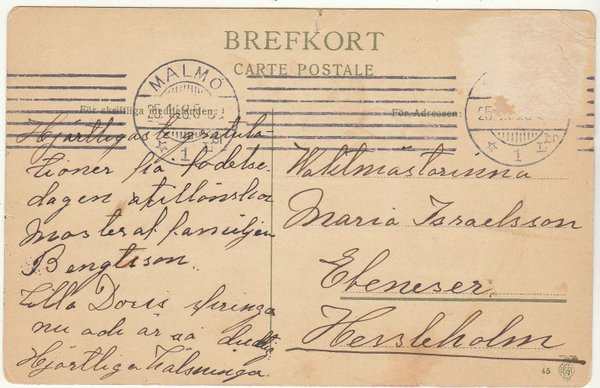 BREFKORT
CARTE POSTALE
MALMÖ
1
För skriftliga meddelanden:
För Adressen:
1
Hjärtligaste gratula-
tioner på födelse-
dagen
Moster af familjen
Bengtsson.
Lilla Doris springa
nu och är så
Hjärtliga hälsningar
Waktmästarinna
Maria Israelsson
Ebeneser
Hessleholm
45